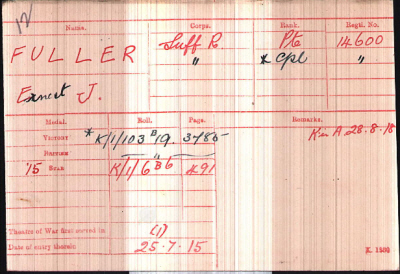 12
Name. Corps. Rank. Regtl. No.
FULLER Suff R. Pte 14600
Ernest J. " * Cpl "
Medal. Roll. Page. Remarks.
Victory * K/1/103 B 19. 3785 K in A 28.8.18
British " "
'15 Star K/1/6 B6 491
Theatre of War first served in (1)
Date of entry therein 25.7.15
K. 1380